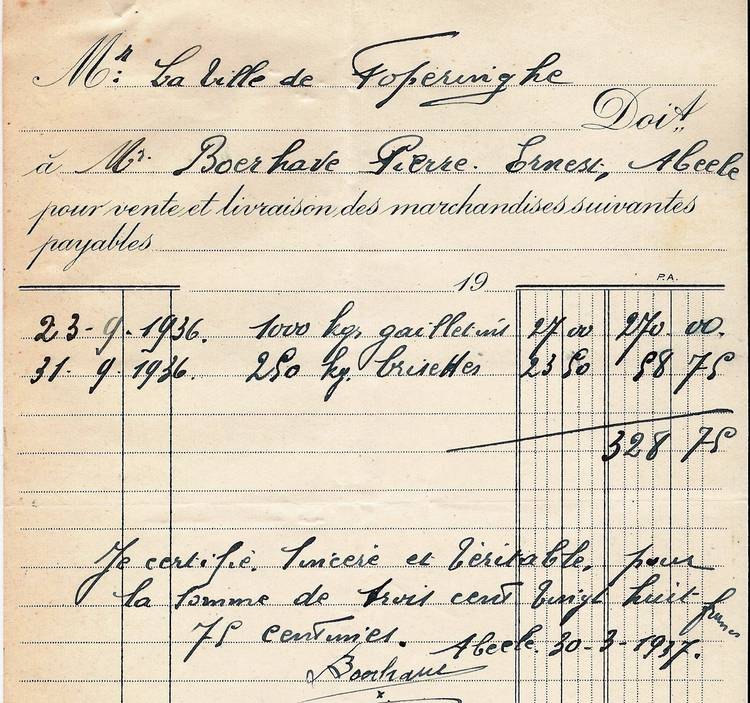 Mr: La Ville de Poperinghe
Doit
à Mr. Boerhave Pierre. Ernest, Abeele
pour vente et livraison des marchandises suivantes
payables
19 P.A.
23-9-1936. 1000 kgs gailletins 27 00 270 00.
31- 9-1936. 250 kg. brisettes 23 50 58 75
328 75
Je certifie. Sincère et Véritable, pour
la Somme de trois cent vingt huit francs
75 centimes. Abeele. 30-3-1937.
Boerhave